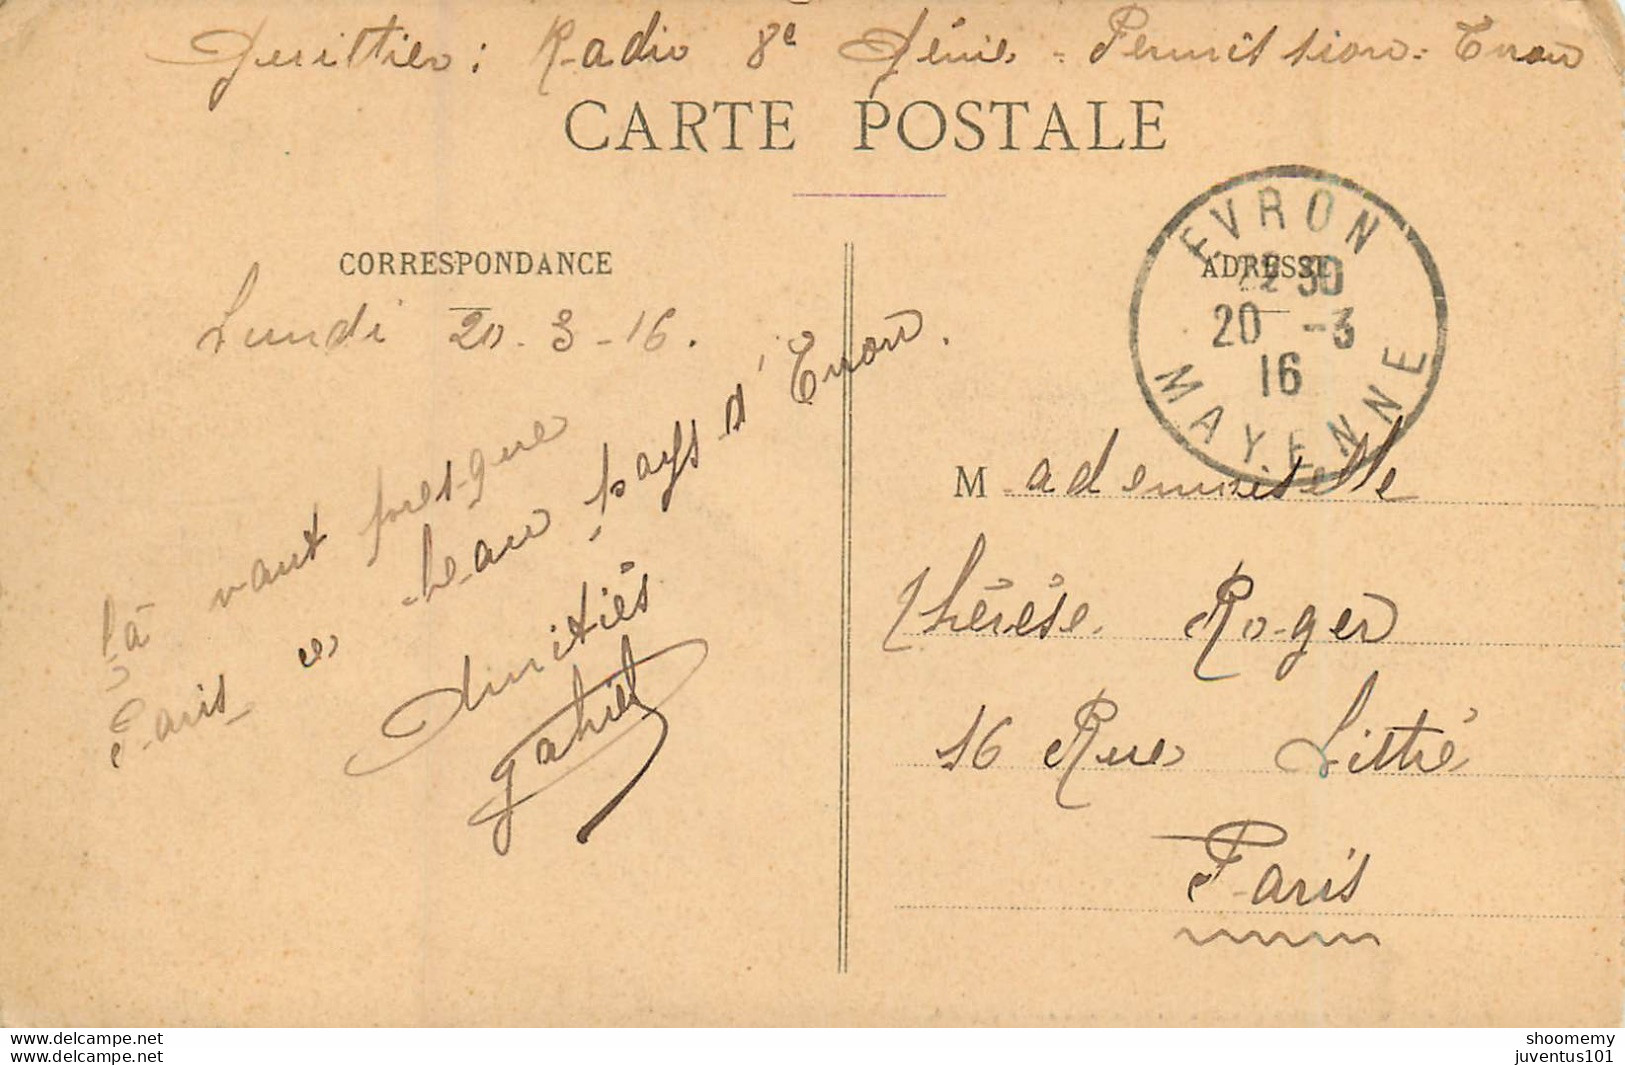 Quittier : Radio 8e Génie - Permission - Evron
CARTE POSTALE
CORRESPONDANCE
Lundi 20-3-16.
Çà vaut presque
Paris "le" beau pays d'Evron.
Amitiés
Gabriel
EVRON
30
20 -3
16
MAYENNE
ADRESSE
Mademoiselle
Thérèse Roger
16 Rue Littré
Paris
www.delcampe.net
shoomemy
juventus101